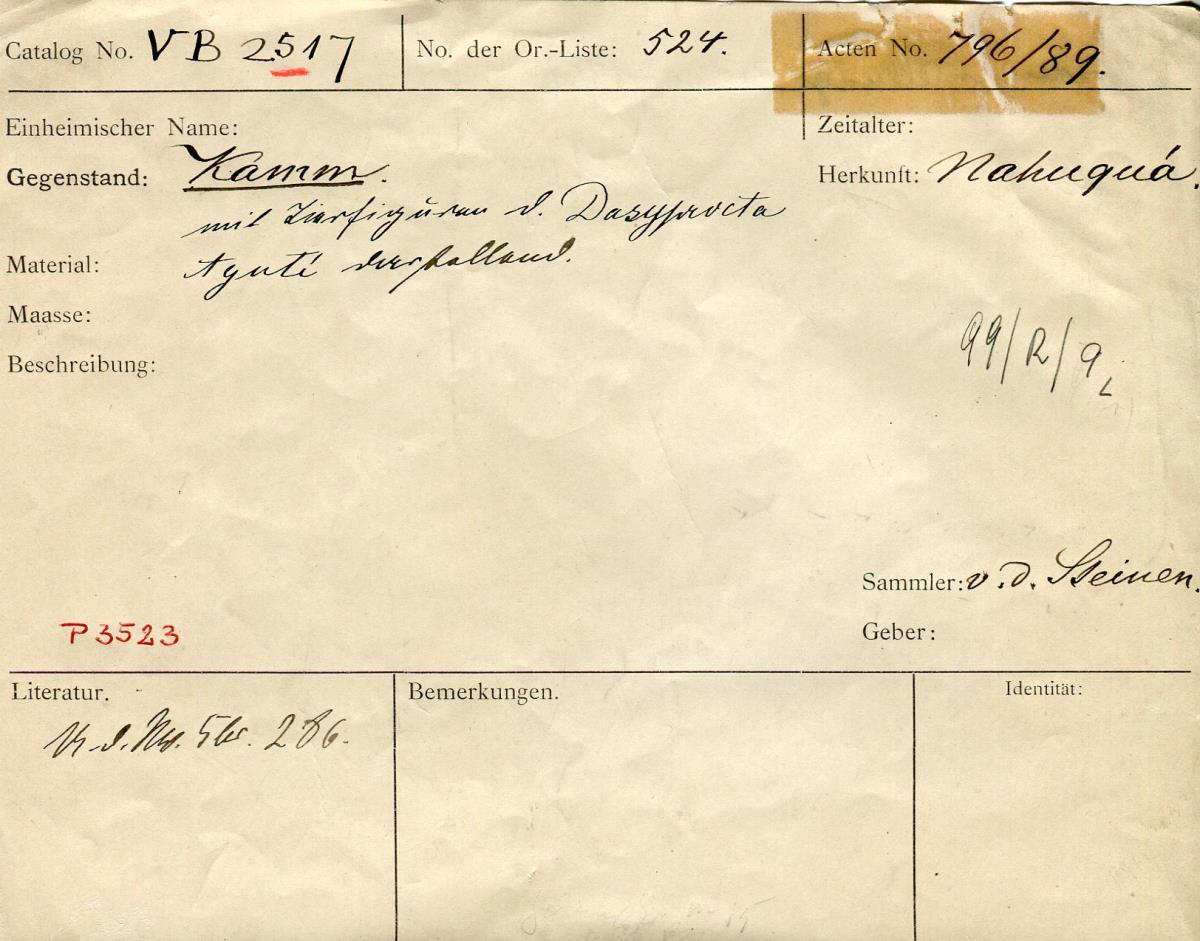 Catalog No. VB 2517
No. der Or.-Liste: 524.
Acten No. 796/89.
Einheimischer Name:
Zeitalter:
Gegenstand: Kamm.
Herkunft: Nahuquá.
mit Tierfiguren d. Dasyprocta
Aguti darstellend.
Material:
Maasse:
Beschreibung:
99/R/9
Sammler: v. d. Steinen.
Geber:
P 3523
Literatur.
Bemerkungen.
Identität:
286.